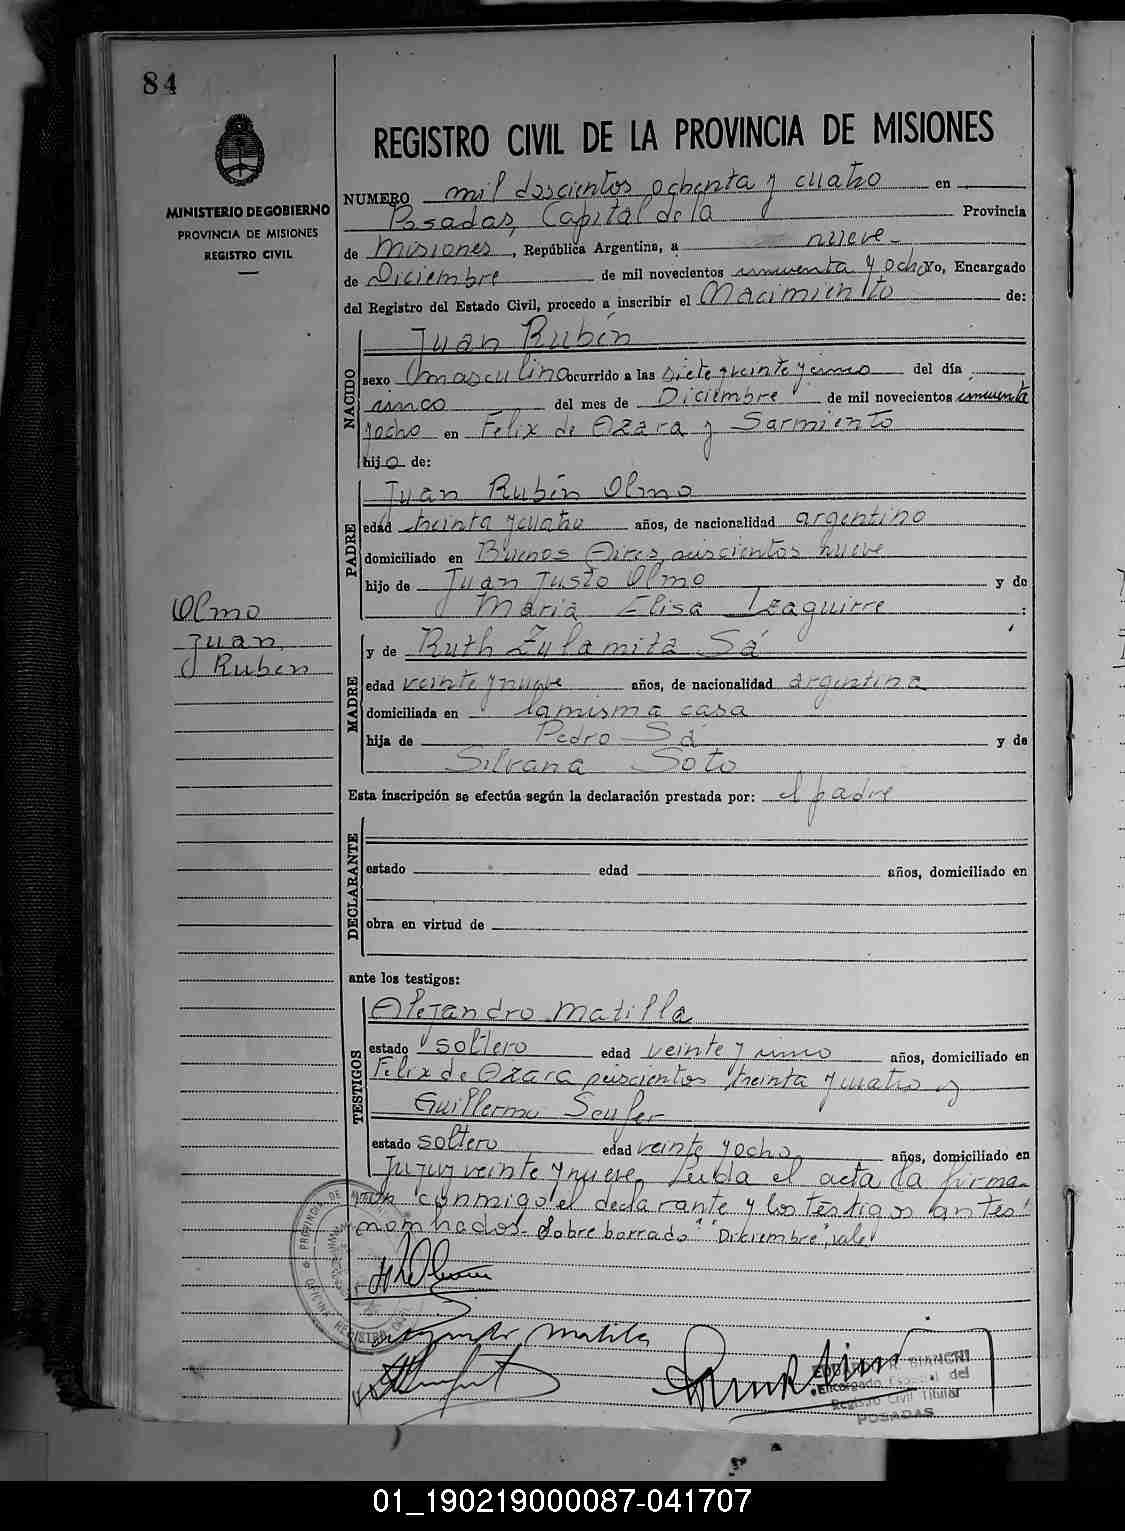 84
REGISTRO CIVIL DE LA PROVINCIA DE MISIONES
MINISTERIO DE GOBIERNO
PROVINCIA DE MISIONES
REGISTRO CIVIL
NUMERO mil doscientos ochenta y cuatro en
Posadas, Capital de la Provincia
de Misiones, República Argentina, a nueve
de Diciembre de mil novecientos cincuenta y ocho Yo, Encargado
del Registro del Estado Civil, procedo a inscribir el Nacimiento de:
NACIDO
Juan Rubén
sexo masculino ocurrido a las siete y veinte y cinco del día
cinco del mes de Diciembre de mil novecientos cincuenta
y ocho en Felix de Azara y Sarmiento
hijo de:
PADRE
Juan Rubén Olmo
edad treinta y cuatro años, de nacionalidad argentino
domiciliado en Buenos Aires seiscientos nueve
hijo de Juan Justo Olmo y de
Maria Elisa Izaguirre :
Olmo
Juan
Ruben
MADRE
y de Ruth Zulamita Sá
edad veinte y nueve años, de nacionalidad argentina
domiciliada en la misma casa
hija de Pedro Sá y de
Silvana Soto
Esta inscripción se efectúa según la declaración prestada por: el padre
DECLARANTE
estado edad años, domiciliado en
obra en virtud de
ante los testigos:
TESTIGOS
Alejandro Matilla
estado soltero edad veinte y uno años, domiciliado en
Felix de Azara seiscientos treinta y cuatro y
Guillermo
estado soltero edad veinte y ocho años, domiciliado en
Jujuy veinte y nueve. Leida el acta la firma-
ron conmigo el declarante y los testigos antes
nombrados. Sobre borrado "Diciembre", vale
Matilla
BIANCHI
Encargado del
Registro Civil Titular
POSADAS
01_190219000087-041707